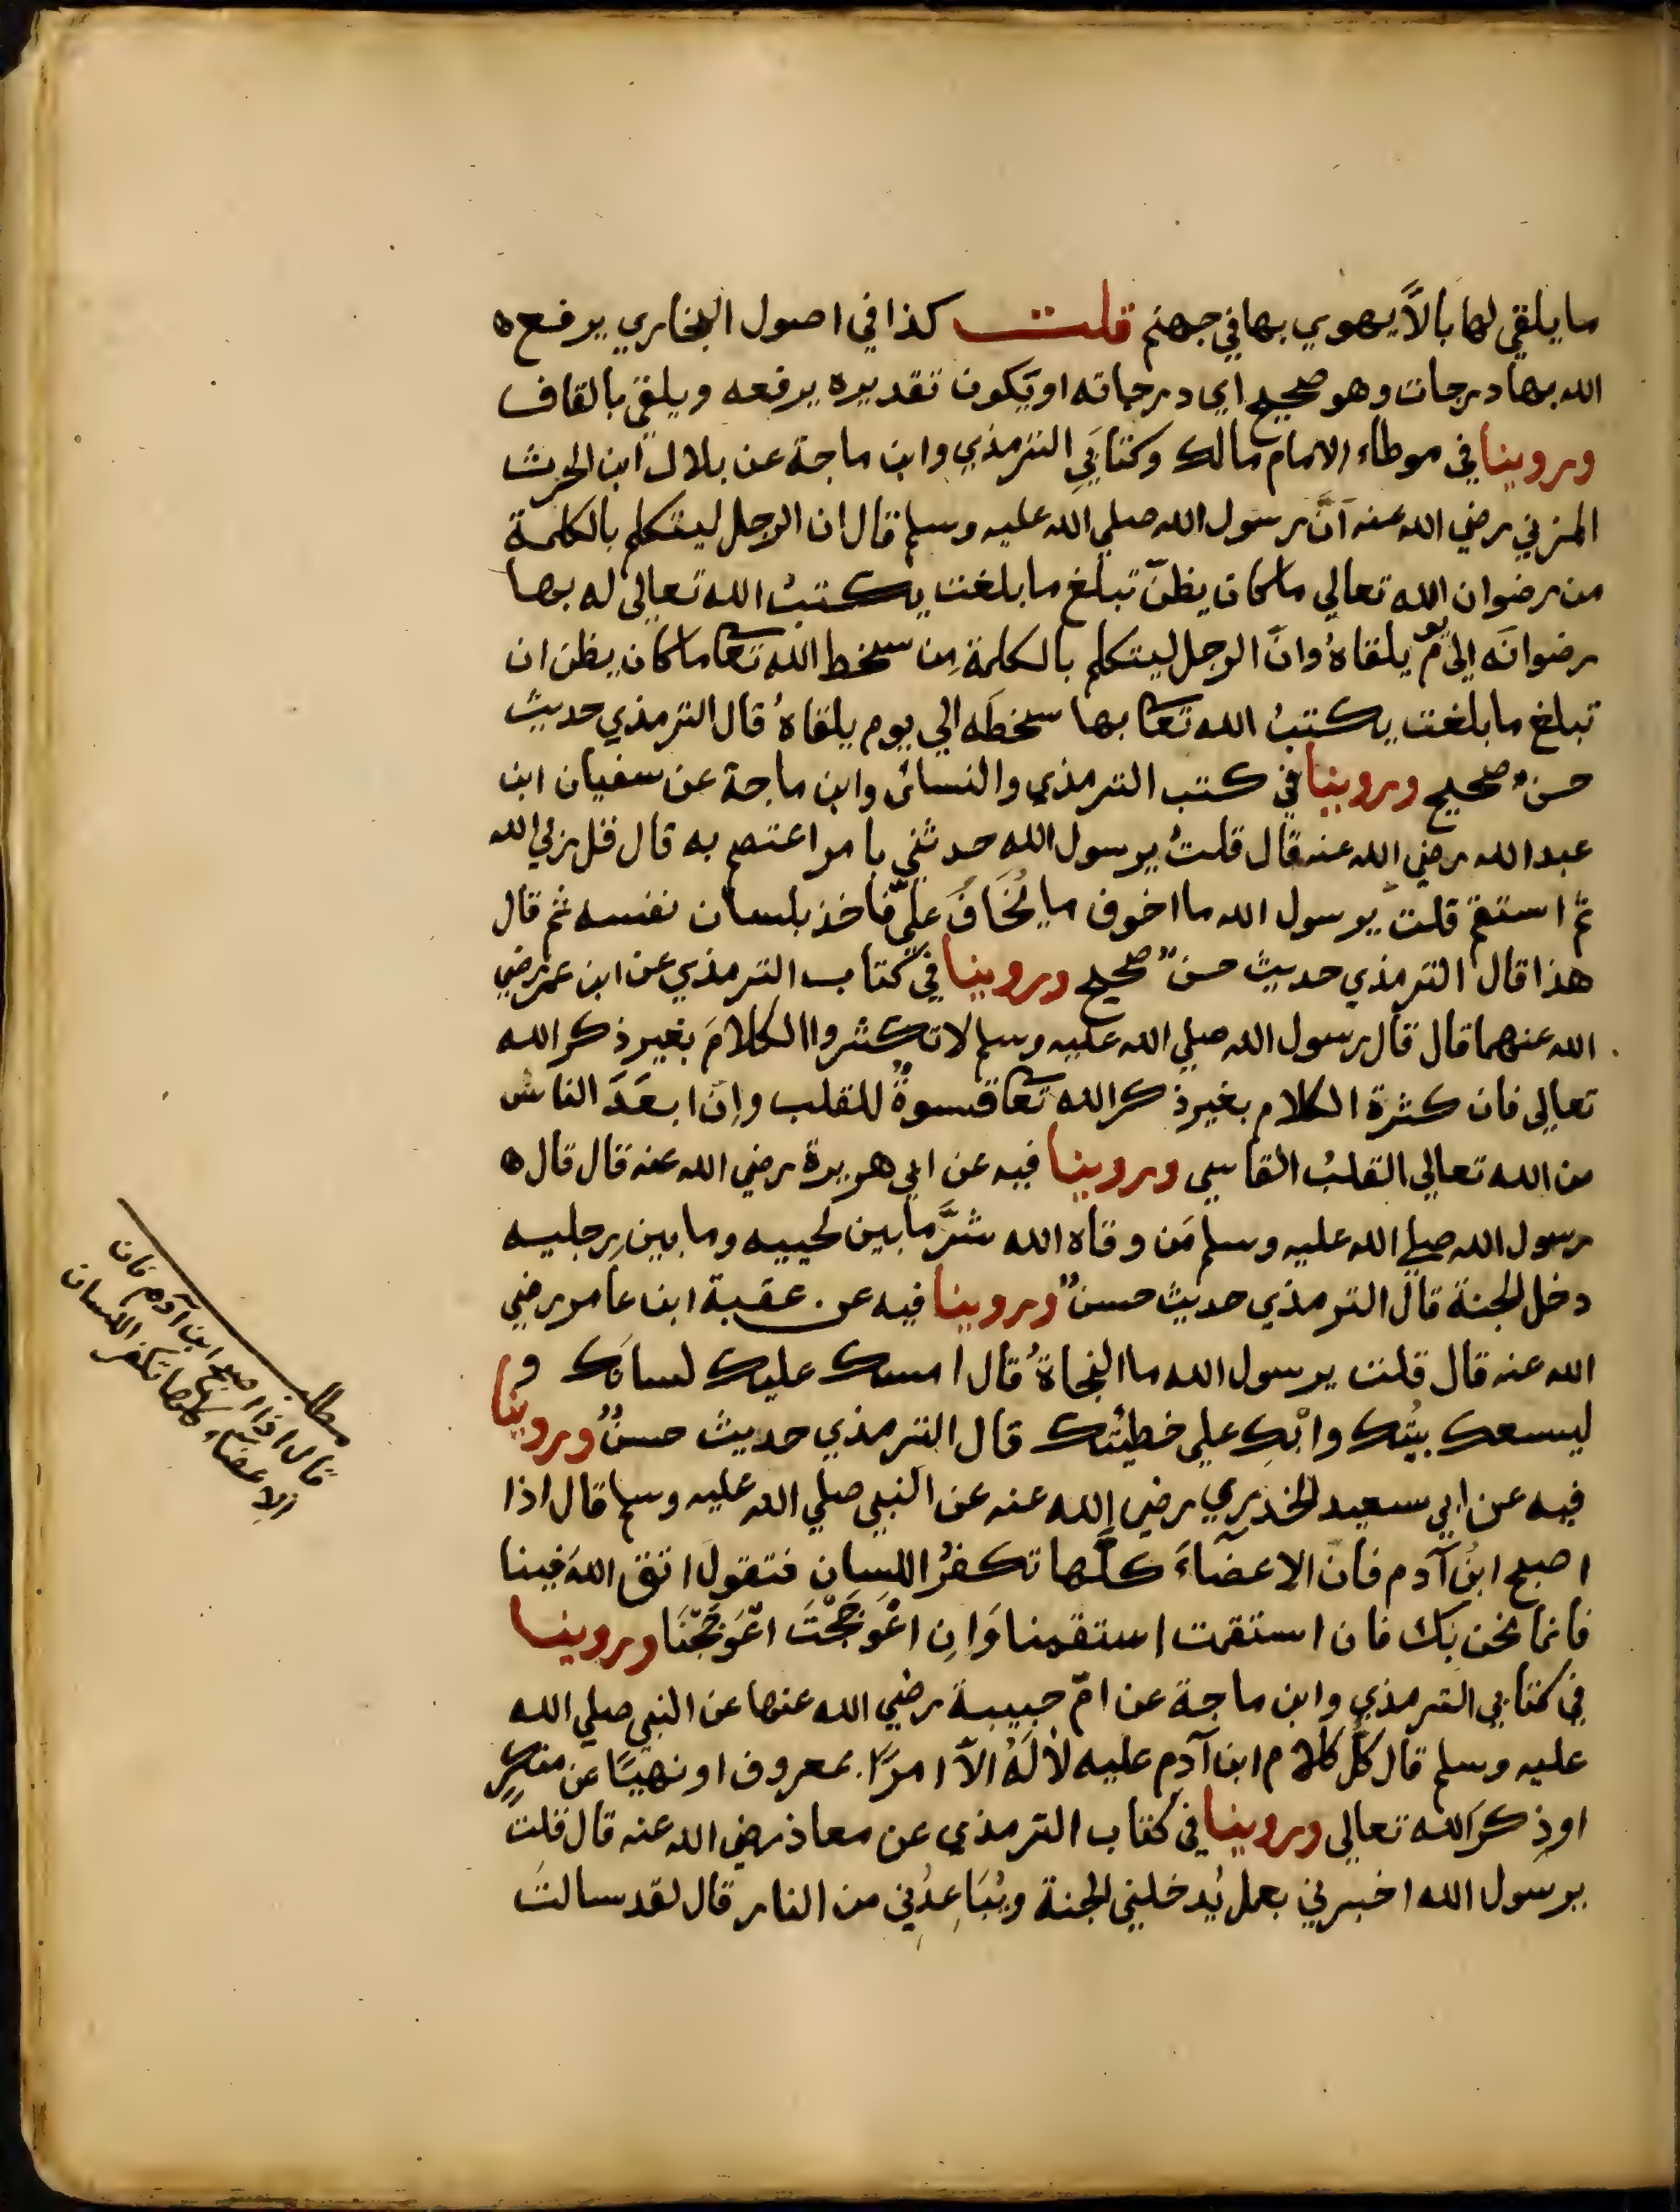 ما يلقي لها بالاً يهوي بها في جهنم قلت كذا في اصول البخاري يرفع ه
الله بها درجات وهو صحيح اي درجاته او يكون تقديره يرفعه ويلقي بالقاف
وروينا في موطاء الامام مالك وكتابَيِ الترمذي وابن ماجة عن بلال ابن الحرث
المزني رضي الله عنه انَّ رسول الله صلي الله عليه وسلم قال ان الرجل ليتكلم بالكلمة
من رضوان الله تعالي ما كان يظنّ تبلغ ما بلغت يكتبُ الله تعالي له بها
رضوانَه الي يوم يلقاهُ وانَّ الرجل ليتكلم بالكلمة مِن سخط الله تعا ما كان يظن ان
تبلغ ما بلغت يكتبُ الله تعا بها سخطَه الي يوم يلقاهُ قال الترمذي حديث
حسنٌ صحيح وروينا في كتب الترمذي والنسائ وابن ماجة عن سفيان ابن
عبد الله رضي الله عنه قال قلتُ يرسول الله حدثني بامر اعتصم به قال قل ربي الله
ثم استقم قلت يرسول الله ما اخوف ما يُخَافُ عليّ فاخذ بلسان نفسه ثم قال
هذا قال الترمذي حديث حسنٌ صحيح وروينا في كتاب الترمذي عن ابن عمر رضي
الله عنهما قال قال رسول الله صلي الله عليه وسلم لا تكثروا الكلامَ بغير ذكر الله
تعالي فان كثرة الكلام بغير ذكر الله تعا قسوةٌ للقلب وانّ ابعَدَ الناس
من الله تعالي القلبُ القاسي وروينا فيه عن ابي هريرة رضي الله عنه قال قال ه
رسول الله صلي الله عليه وسلم مَن وقاه الله شرَّ ما بين لحييه وما بين رِجليه
دخل الجنة قال الترمذي حديث حسنٌ وروينا فيه عن عقبة ابن عامر رضي
الله عنه قال قلت يرسول الله ما النجاةُ قال امسك عليك لسانَك و
ليسعك بيتُك وابْكِ علي خطيئتك قال الترمذي حديث حسنٌ وروينا
فيه عن ابي سعيد الخدري رضي الله عنه عن النبي صلي الله عليه وسلم قال اذا
اصبح ابنُ آدم فان الاعضاءَ كلَّها تكفرُ اللسان فتقول اتق الله فينا
فانما نحن بَك فان استقمت استقمنا وَانِ اعْوَجَجْتَ اعْوَجَجْنَا وروينا
في كتابي الترمذي وابن ماجة عن امّ حبيبة رضي الله عنها عن النبي صلي الله
عليه وسلم قال كلّ كلام ابن آدم عليه لا لَهُ الاّ امرًا بمعروف او نهيًا عن منكرٍ
او ذِكرَ الله تعالي وروينا في كتاب الترمذي عن معاذ رضي الله عنه قال قلت
يرسول الله اخبرني بعمل يُدخلني الجنة ويُبَاعِدُني من النار قال لقد سالت
مطلب
قال اذا اصبح ابن آدم فان
الاعضاء كلها تكفر اللسان